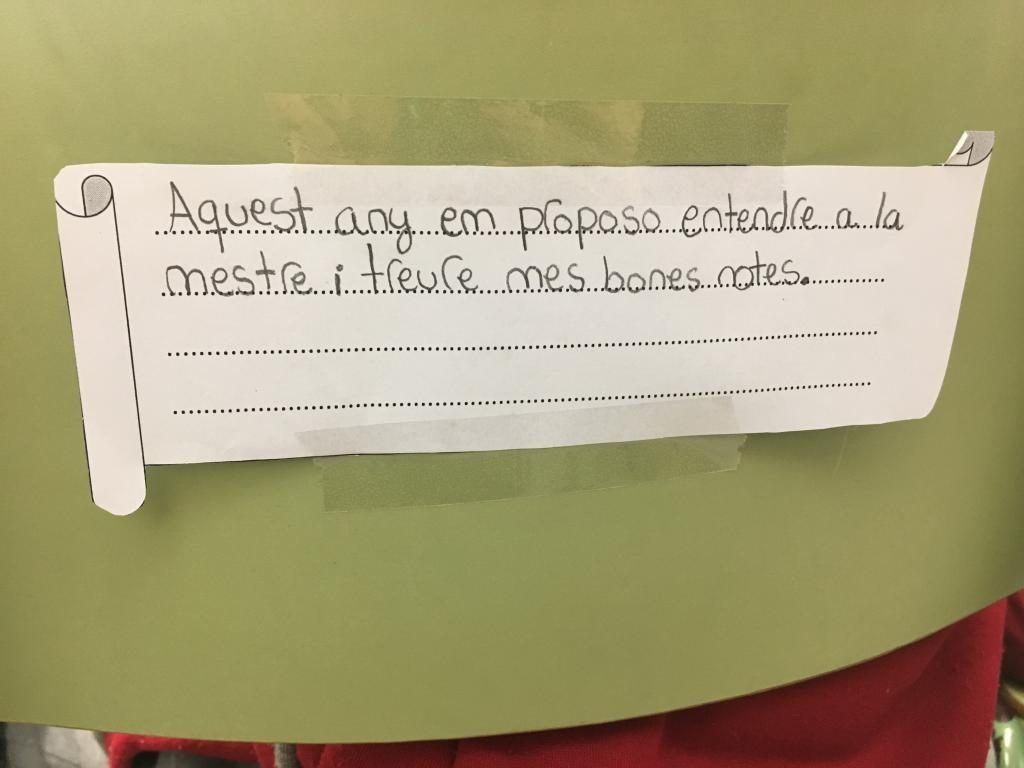 Aquest any em proposo entendre a la
mestre i treure mes bones notes.